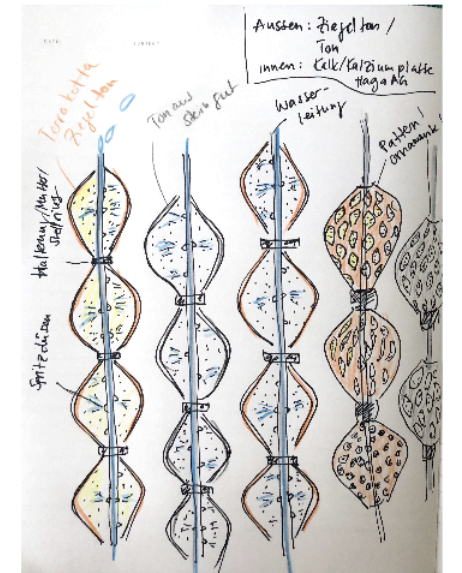 Aussen: Ziegelton /
Ton
innen: Kalk/Kalziumplatte
Haga AG
Terrokotta
Ziegelton
Ton aus
Steingut
Wasser-
leitung
Patten/
Ornamente!
Halterung/Mutter/
Spritzdüsen